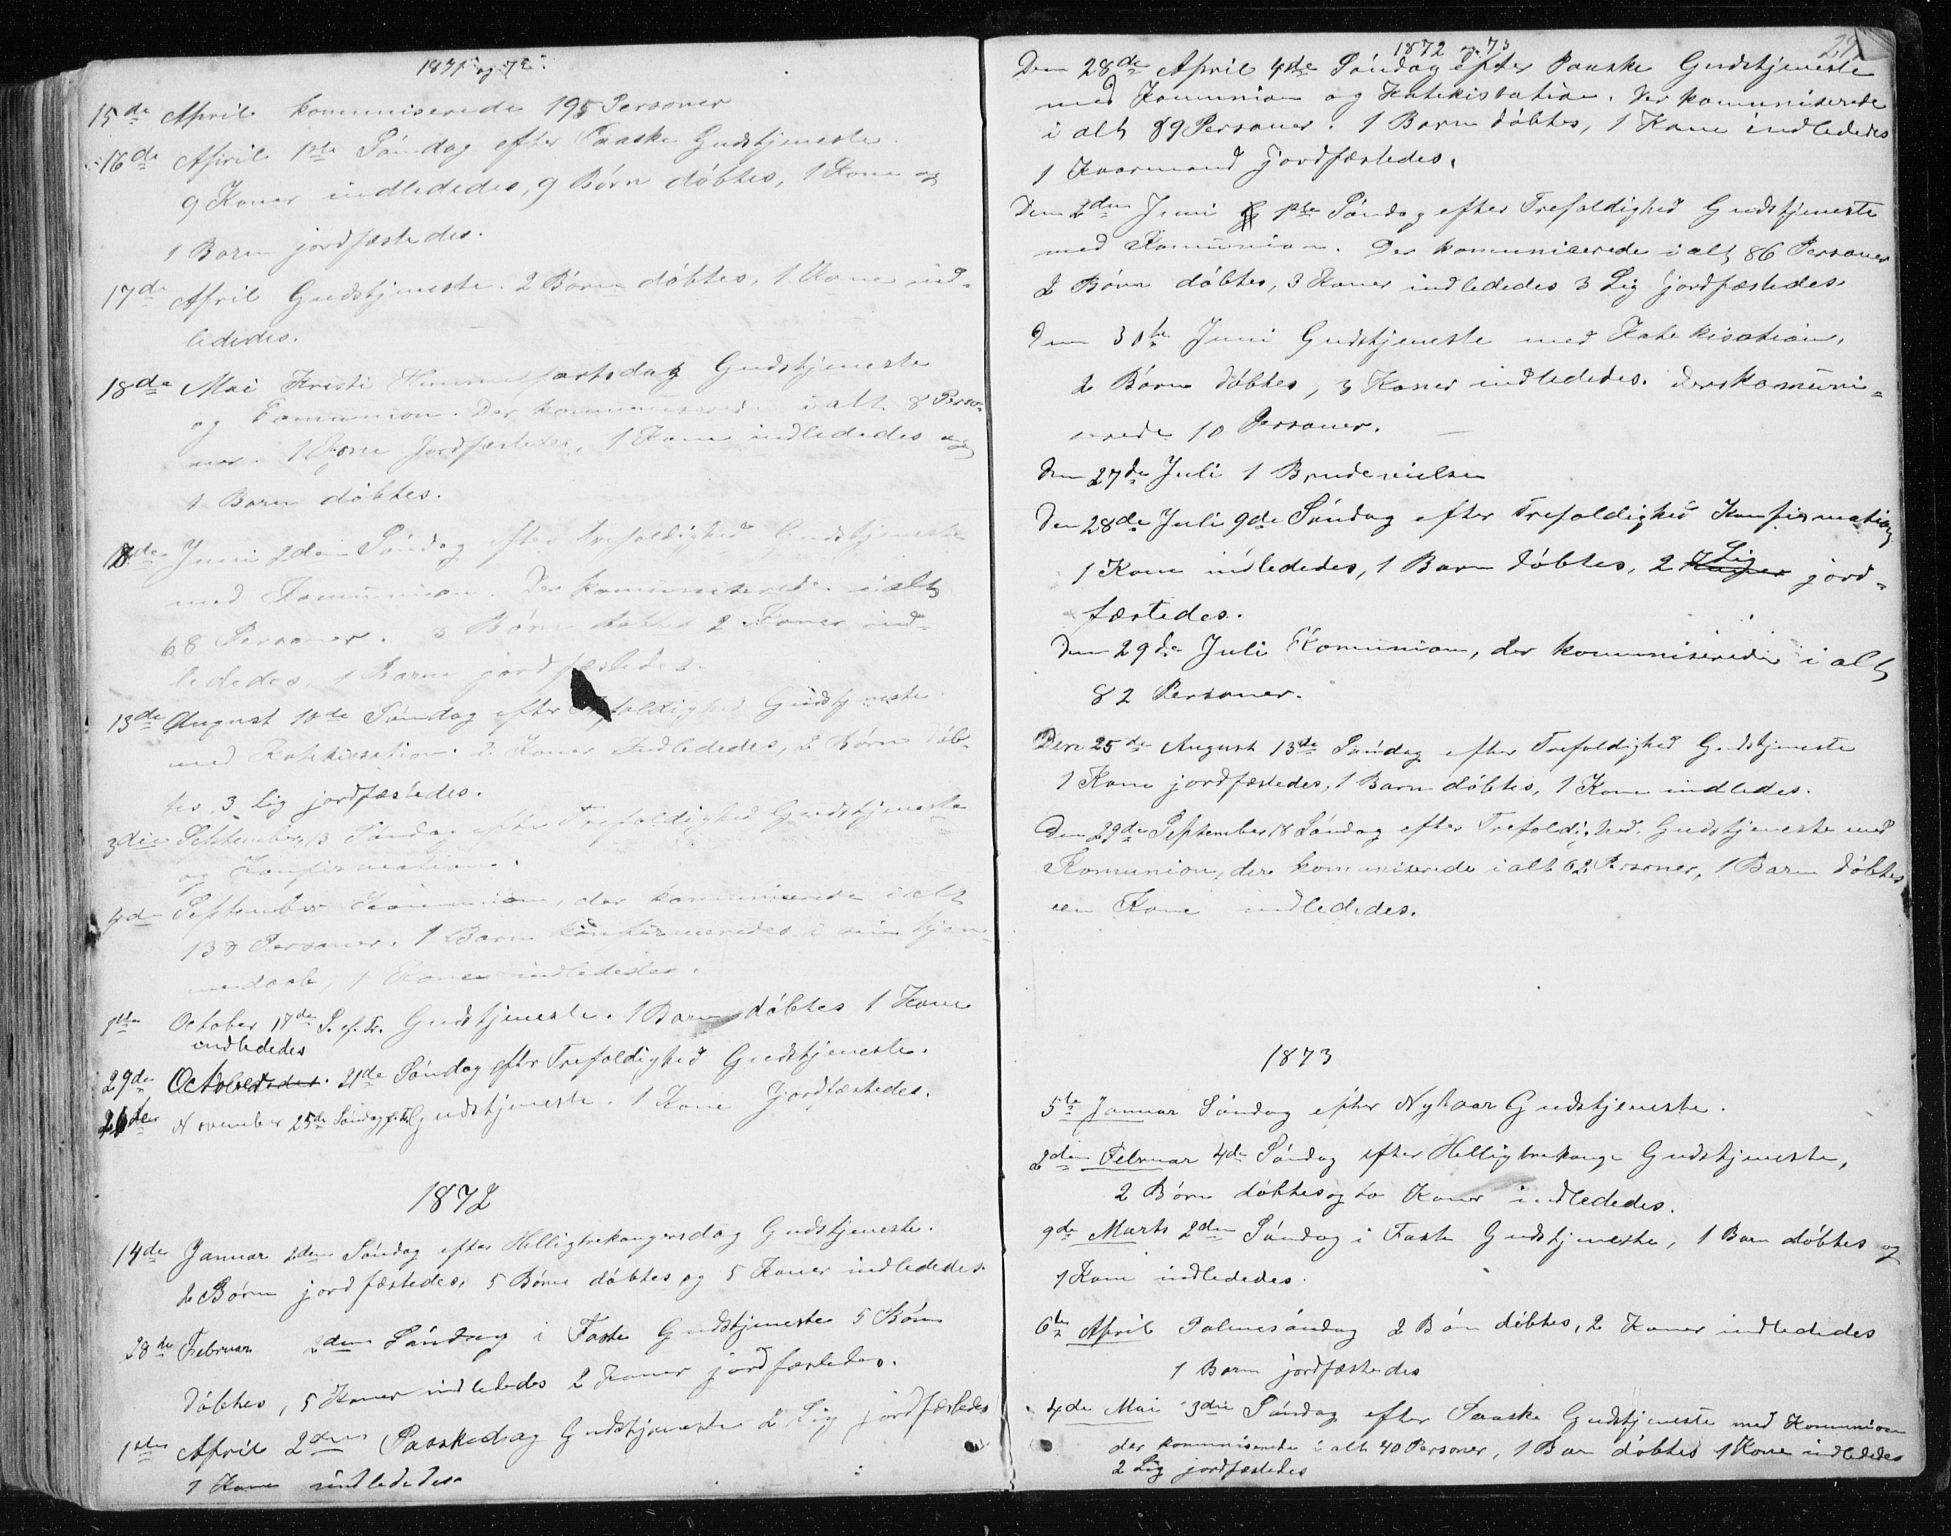 1871 og 72.
15de April kommuniserede 195 Personer
16de April 1ste Søndag efter Paaske Gudstjeneste.
9 Koner indlededes, 9 Børn døbtes, 1 Kone og
1 Barn jordfæstedes.
17de April Gudstjeneste. 2 Børn døbtes, 1 Kone ind-
lededes.
18de Mai Kristi Himmelfartsdag Gudstjeneste
og Komunion. Der kommuniserede i alt 8 Perso-
ner. 1 Kone Jordfæstedes, 1 Kone indlededes og
1 Barn døbtes.
18de Juni 2den Søndag efter Trefoldighed Gudstjeneste
med Komunion. Der komuniserede i alt
68 Personer. 3 Børn døbtes 2 Koner ind-
lededes, 1 Barn jordfæstedes.
13de August 10de Søndag efter Trefoldighed Gudstjeneste
med Katekisation. 2 Koner Indlededes, 2 Børn døb-
tes, 3 Lig jordfæstedes.
3die September 13 Søndag efter Trefoldighed Gudstjeneste
og Konfirmation.
4de September Komunion, der kommuniserede i alt
138 Personer. 1 Barn konfirmeredes i sin hjem-
medaab, 1 Kone indlededes.
1ste October 17de S. ef. Tr. Gudstjeneste. 1 Barn døbtes 1 Kone
indlededes
29de October 21de Søndag efter Trefoldighed Gudstjeneste.
26de November 25de Søndag Gudstjeneste. 1 Kone Jordfæstedes.
1872
14de Januar 2den Søndag efter Helligtrekongersdag Gudstjeneste.
2 Børn jordfæstedes, 5 Børn døbtes og 5 Koner indlededes.
28de Februar 2den Søndag i Faste Gudstjeneste 5 Børn
døbtes, 5 Koner indlededes 2 Koner jordfæstedes.
1ste April 2den Paaskedag Gudstjeneste 2 Lig jordfæstedes
1 Kone indlededes.
1872 og 73
29
Den 28de April 4de Søndag efter Paaske Gudstjeneste
med Komunion og Katekisation. Der komuniserede
i alt 89 Personer. 1 Barn døbtes, 1 Kone indlededes
1 Kaarmand jordfæstedes.
Den 2den Juni 1ste Søndag efter Trefoldighed Gudstjeneste
med Komunion. Der komuniserede i alt 86 Personer
2 Børn døbtes, 3 Koner indlededes 3 Lig jordfæstedes
Den 30te Juni Gudstjeneste med Katekisation,
2 Børn døbtes, 3 Koner indlededes. Der komuni-
serede 10 Personer.
Den 27de Juli 1 Brudevielse
Den 28de Juli 9de Søndag efter Trefoldighed Konfirmation
1 Kone indlededes, 1 Barn døbtes, 2 Koner Lig jord-
fæstedes.
Den 29de Juli Komunion, der kommuniserede i alt
82 Personer.
Den 25de August 13de Søndag efter Trefoldighed Gudstjeneste
1 Kone jordfæstedes, 1 Barn døbtes, 1 Kone indledes.
Den 29de September 18 Søndag efter Trefoldighed. Gudstjeneste med
Komunion, der komuniserede i alt 62 Personer, 1 Barn døbtes
een Kone indlededes.
1873
5te Januar Søndag efter Nytaar Gudstjeneste.
2den Februar 4de Søndag efter Helligtrekonge Gudstjeneste,
2 Børn døbtes og to Koner indlededes.
9de Marts 2den Søndag i Faste Gudstjeneste, 1 Barn døbtes og
1 Kone indlededes.
6te April Palmesøndag 2 Børn døbtes, 2 Koner indlededes
1 Barn jordfæstedes
4de Mai 3die Søndag efter Paaske Gudstjeneste med Kommunion
der kommuniserede i alt 40 Personer, 1 Barn døbtes 1 Kone indlededes
2 Lig jordfæstedes